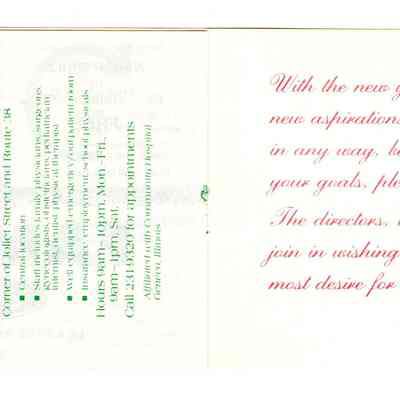 Corner of Joliet Street and Route 38
■ Central location
■ Staff includes family physicians, surgeons,
gynecologists, obstetricians, pediatrician,
internist, dentist, physical therapist
■ Well equipped emergency/out patient room
■ Insurance, employment, school physicals
Hours 9am-10pm, Mon-Fri.,
9am-1pm, Sat.
Call 231-9320 for appointments
Affiliated with Community Hospital
Geneva, Illinois
With the new y
new aspirations
in any way,
your goals, ple
The directors,
join in wishing
most desire for